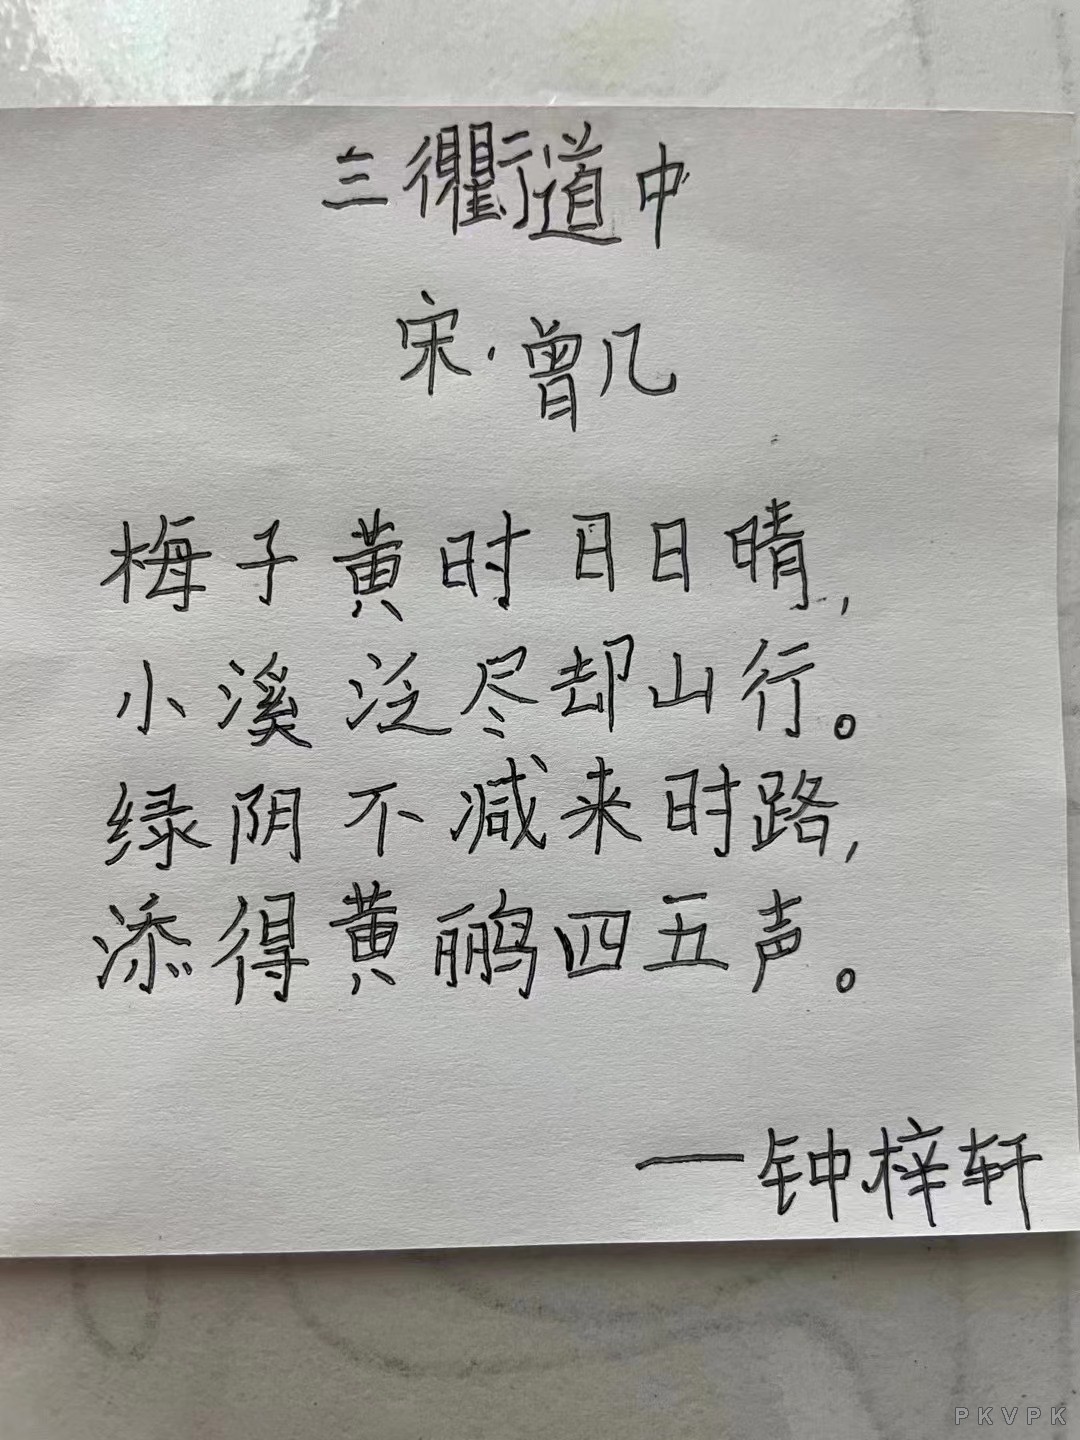 三衢道中
宋·曾几
梅子黄时日日晴,
小溪泛尽却山行。
绿阴不减来时路,
添得黄鹂四五声。
—钟梓轩
PKVPK